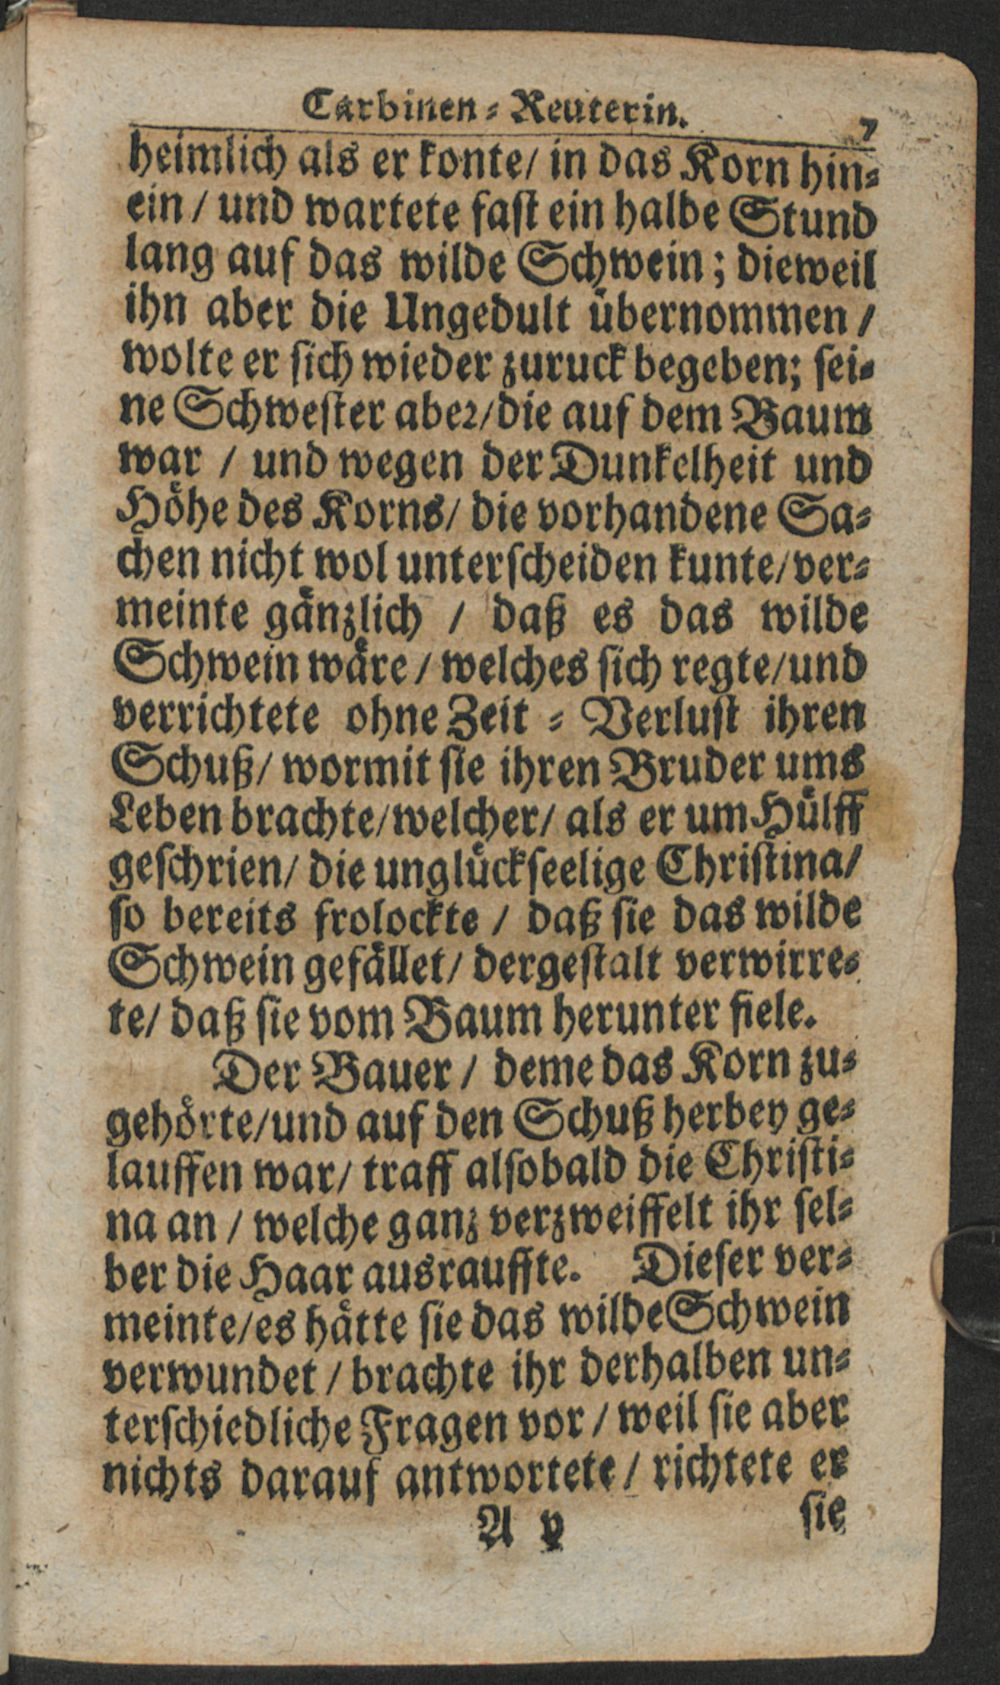 Carbinen-Reuterin. 7
heimlich als er konte/ in das Korn hin-
ein / und wartete fast ein halbe Stund
lang auf das wilde Schwein; dieweil
ihn aber die Ungedult übernommen /
wolte er sich wieder zuruck begeben; sei-
ne Schwester aber/die auf dem Baum
war / und wegen der Dunkelheit und
Höhe des Korns/ die vorhandene Sa-
chen nicht wol unterscheiden kunte/ver-
meinte gänzlich / daß es das wilde
Schwein wäre / welches sich regte/und
verrichtete ohne Zeit-Verlust ihren
Schuß/ wormit sie ihren Bruder ums
Leben brachte/welcher/ als er um Hülff
geschrien/ die unglückseelige Christina/
so bereits frolockte / daß sie das wilde
Schwein gefället/ dergestalt verwirre-
te/ daß sie vom Baum herunter fiele.
Der Bauer / deme das Korn zu-
gehörte/und auf den Schuß herbey ge-
lauffen war/ traff alsobald die Christi-
na an / welche ganz verzweiffelt ihr sel-
ber die Haar ausrauffte. Dieser ver-
meinte/es hätte sie das wilde Schwein
verwundet / brachte ihr derhalben un-
terschiedliche Fragen vor / weil sie aber
nichts darauf antwortete / richtete er
A v sie